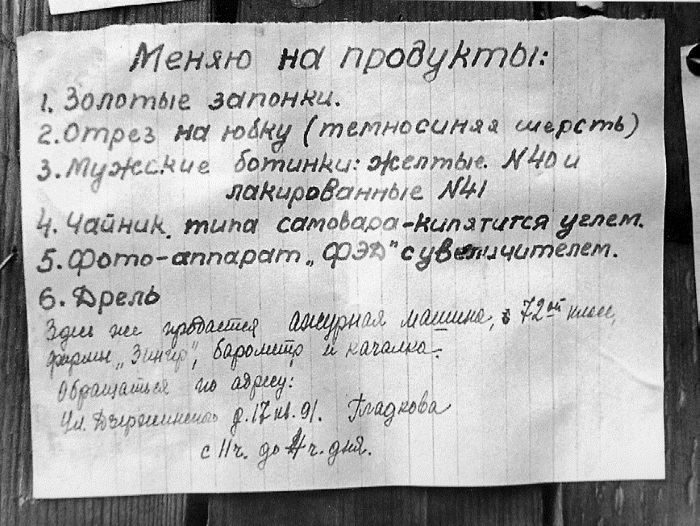 Меняю на продукты:
1. Золотые запонки.
2. Отрез на юбку (темносиняя шерсть)
3. Мужские ботинки: желтые N40 и
лакированные N41
4. Чайник. типа самовара-кипятится углем.
5. Фото-аппарат „ФЭД" с увеличителем.
6. Дрель
Здесь же продается ажурная машина, 72ой класс,
фирмы „Зингер", барометр и качалка.
Обращаться по адресу:
Ул. Дзержинского д. 17 кв. 91. Гладкова
с 11 ч. до 4 ч. дня.